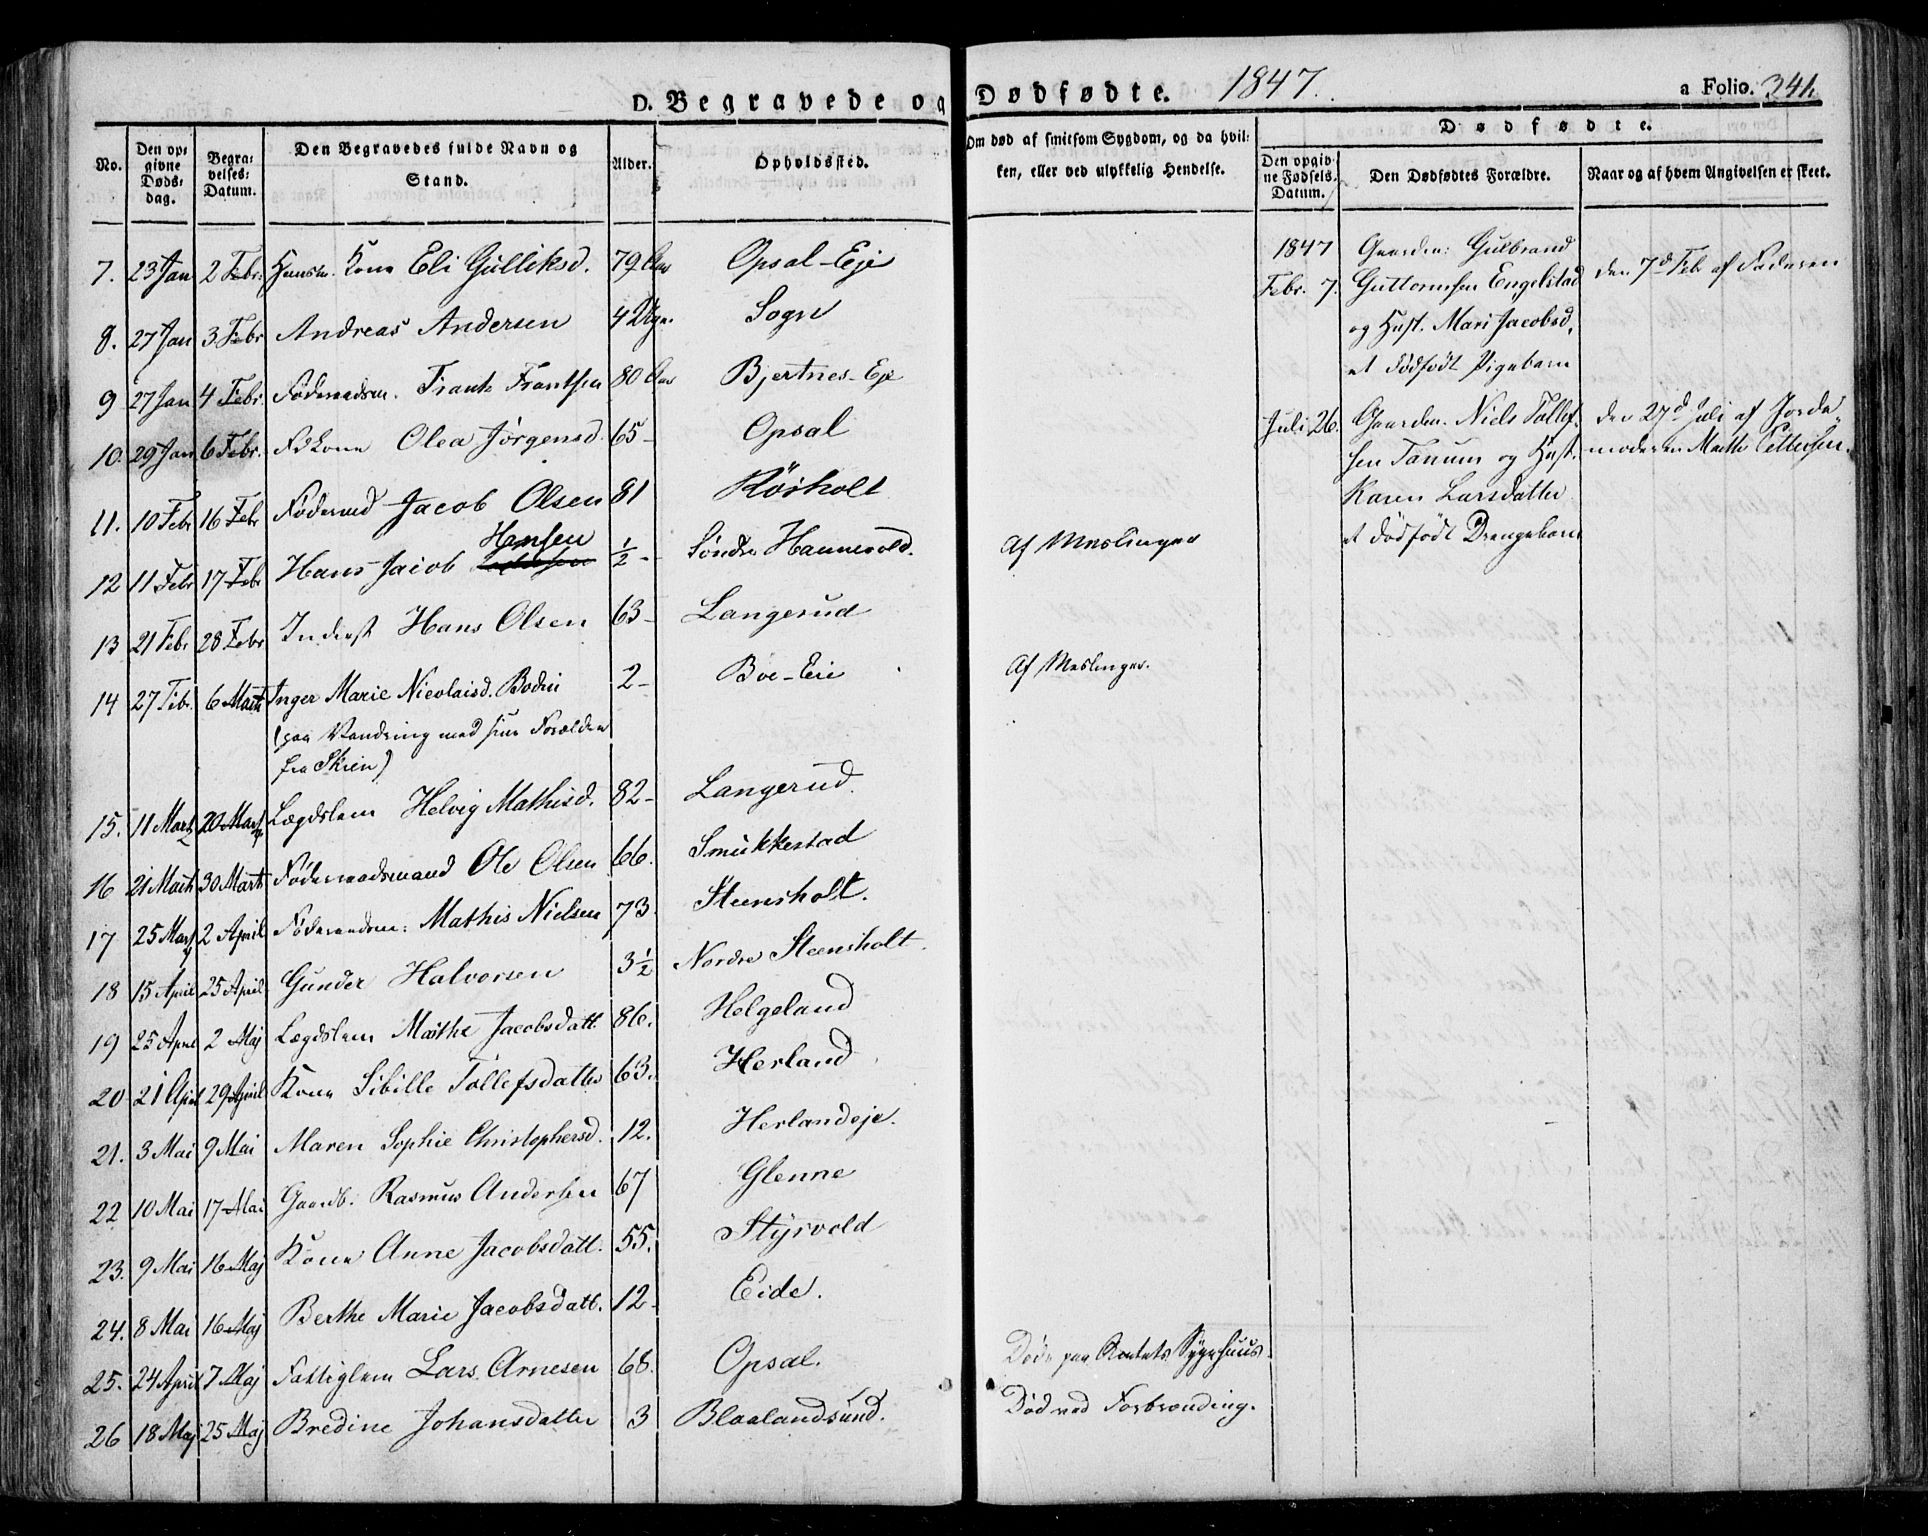 D. Begravede og Dødfødte. 1847. a Folio. 341
No.
Den opgivne Dødsdag.
Begravelses-Datum.
Den Begravedes fulde Navn og Stand.
Alder.
Opholdssted.
Om død af smitsom Sygdom, og da hvilken, eller ved ulykkelig Hendelse.
Dødfødte.
Den opgivne Fødsels-Datum.
Den Dødfødtes Forældre.
Naar og af hvem Angivelsen er skeet.
7. 23 Jan 2 Febr. Huusm. Kone Eli Gulliksd. 79 Aar Opsal-Eje
8. 27 Jan 3 Febr Andreas Andersen 4 Uger Sogn
9 27 Jan 4 Febr. Føderaadsm. Frants Frantsen 80 Aar Bjertnes-Eje
10. 29 Jan 6 Febr. Fdkone Olea Jørgensd. 65- Opsal
11. 10 Febr 16 Febr Føderaad Jacob Olsen 81 Rösholt
12 11 Febr 17 Febr Hans Jacob Hansen ½- Søndre Hannevold. Af Meslinger
13 21 Febr 28 Febr Inderst Hans Olsen 63- Langerud
14 27 Febr. 6 Marts Inger Marie Nicolaisd. Bodin 2- Böe-Eie Af Meslinger.
(paa Vandring med sine Forældre
fra Skien)
15. 11 Marts 20 Marts Lægdslem Helvig Mathisd. 82- Langerud.
16 21 Marts 30 Marts Føderaadsmand Ole Olsen 66. Smukkestad
17 25 Marts 2 April Føderaadsm: Mathis Nielsen 73 Steensholt.
18 15 April 25 April Gunder Halvorsen 3½ Nordre Steensholt.
19 25 April 2 Maj Lægdslem Marthe Jacobsdatt. 86. Helgeland
20 21 April 29 April Kone Sibille Tollefsdatter 63. Herland
21. 3 Mai 9 Mai Maren Sophie Christophersd. 12. Herlandeje.
22 10 Mai 17 Mai Gaardb. Rasmus Andersen 67 Glenne
23. 9 Mai 16 Maj Kone Anne Jacobsdatt. 55. Styrvold
24. 8 Mai 16 Maj Berthe Marie Jacobsdatt. 12- Eide.
25. 24 April 7 Maj Fattiglem Lars Arnesen 68. Opsal. Døde paa Amtets Sygehuus.
26 18 Maj 25 Maj Bredine Johansdatter 3 Blaalandsund. Død ved Forbrænding.
1847
Febr. 7. Gaardm: Gulbrand
Guttormsen Engelstad
og Hust. Mari Jacobsd.
et dødfødt Pigebarn
den 7d Feb af Faderen
Juli 26. Gaardm. Niels Tollef-
sen Tanum og Hust.
Karen Larsdatter
et dødfødt Drengebarn
den 27d Juli af Jorde-
moderen Marthe Pettersen.